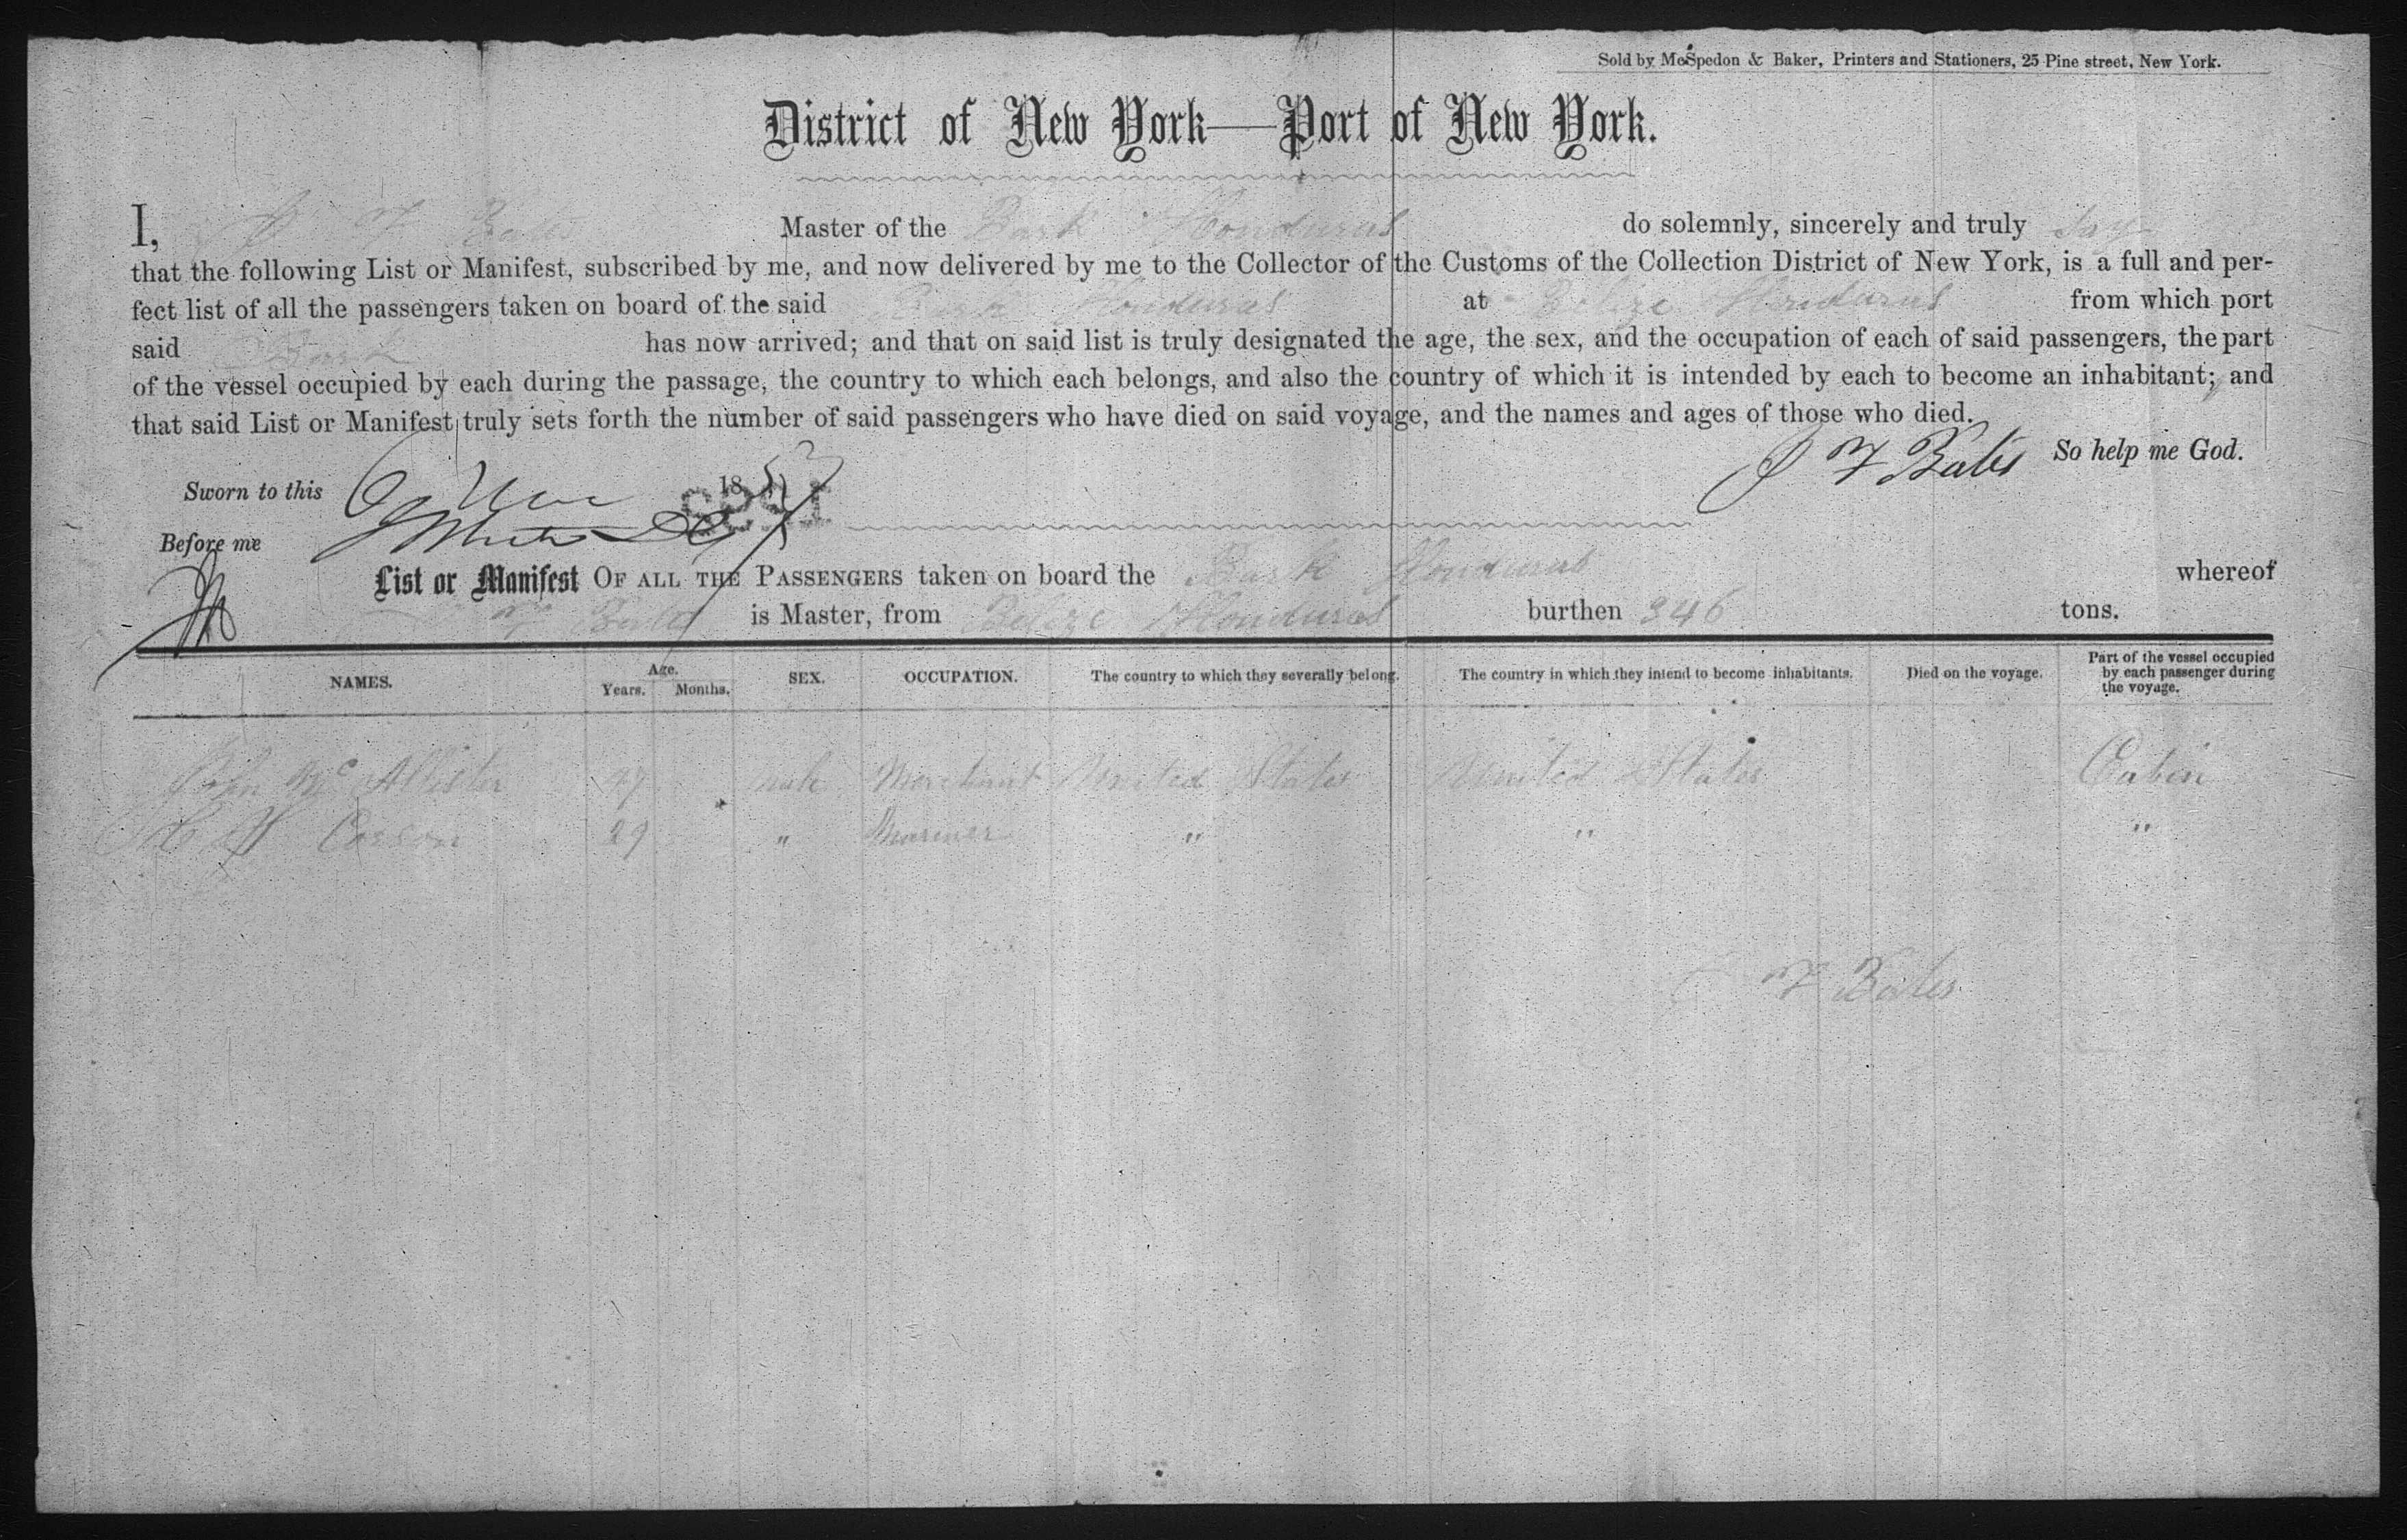 Sold by McSpedon & Baker, Printers and Stationers, 25 Pine street, New York.
District of New York—Port of New York.
I, J F Bates Master of the Bark Honduras do solemnly, sincerely and truly say
that the following List or Manifest, subscribed by me, and now delivered by me to the Collector of the Customs of the Collection District of New York, is a full and per-
fect list of all the passengers taken on board of the said Bark Honduras at Belize Honduras from which port
said Bark has now arrived; and that on said list is truly designated the age, the sex, and the occupation of each of said passengers, the part
of the vessel occupied by each during the passage, the country to which each belongs, and also the country of which it is intended by each to become an inhabitant; and
that said List or Manifest truly sets forth the number of said passengers who have died on said voyage, and the names and ages of those who died.
J F Bates So help me God.
Sworn to this 1853
Before me
List or Manifest OF ALL THE PASSENGERS taken on board the Bark Honduras whereof
F Bates is Master, from Belize Honduras burthen 346 tons.
NAMES. Age. Years. Months. SEX. OCCUPATION. The country to which they severally belong. The country in which they intend to become inhabitants. Died on the voyage. Part of the vessel occupied by each passenger during the voyage.
John McAllister 47 male Merchant United States United States Cabin
Corson 29 " Mariner " " "
F Bates